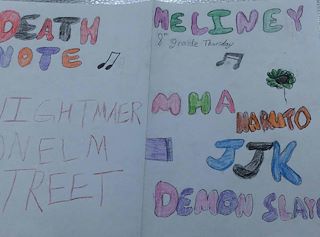 DEATH
NOTE
NIGHTMAER
ON ELM
STREET
MELINEY
8th grade Thursday
MHA
NARUTO
JJK
DEMON SLAY